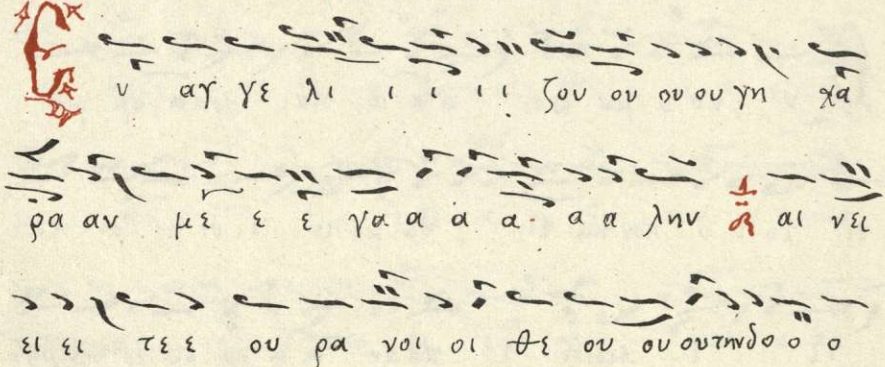 Ευ αγ γε λι ι ι ι ι ζου ου ου ου γη χα
ρα αν με ε ε γα α α α α α λην αι νει
ει ει τε ε ου ρα νοι οι θε ου ου ου την δο ο ο